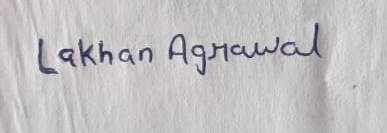 Lakhan Agrawal